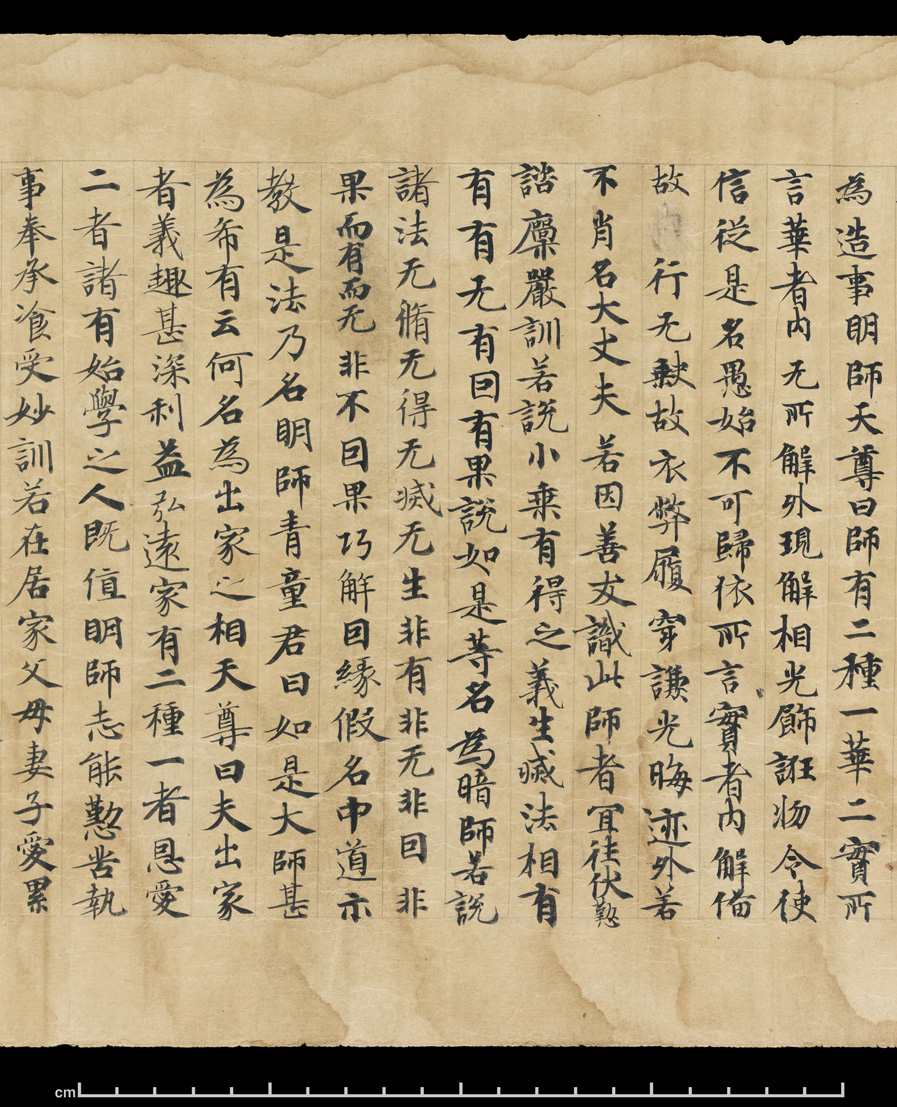 為造事明師天尊曰師有二種一華二實所
言華者內无所解外現解相光餝誑物令使
信從是名愚始不可歸依所言實者內解俻
故行无隸故衣弊履穿謙光晦迹外若
不肖名大丈夫若因善友識此師者冝往伏懃
諮稟嚴訓若說小乗有得之義生滅法相有
有有无有回有果說如是等名為暗師若說
諸法无脩无得无滅无生非有非无非回非
果而有而无非不回果巧解回緣假名中道示
教是法乃名明師青童君曰如是大師甚
為希有云何名為出家之相天尊曰夫出家
者義趣甚深利益弘遠家有二種一者恩愛
二者諸有始學之人既值明師志能懃苦執
事奉承飡受妙訓若在居家父母妻子愛累